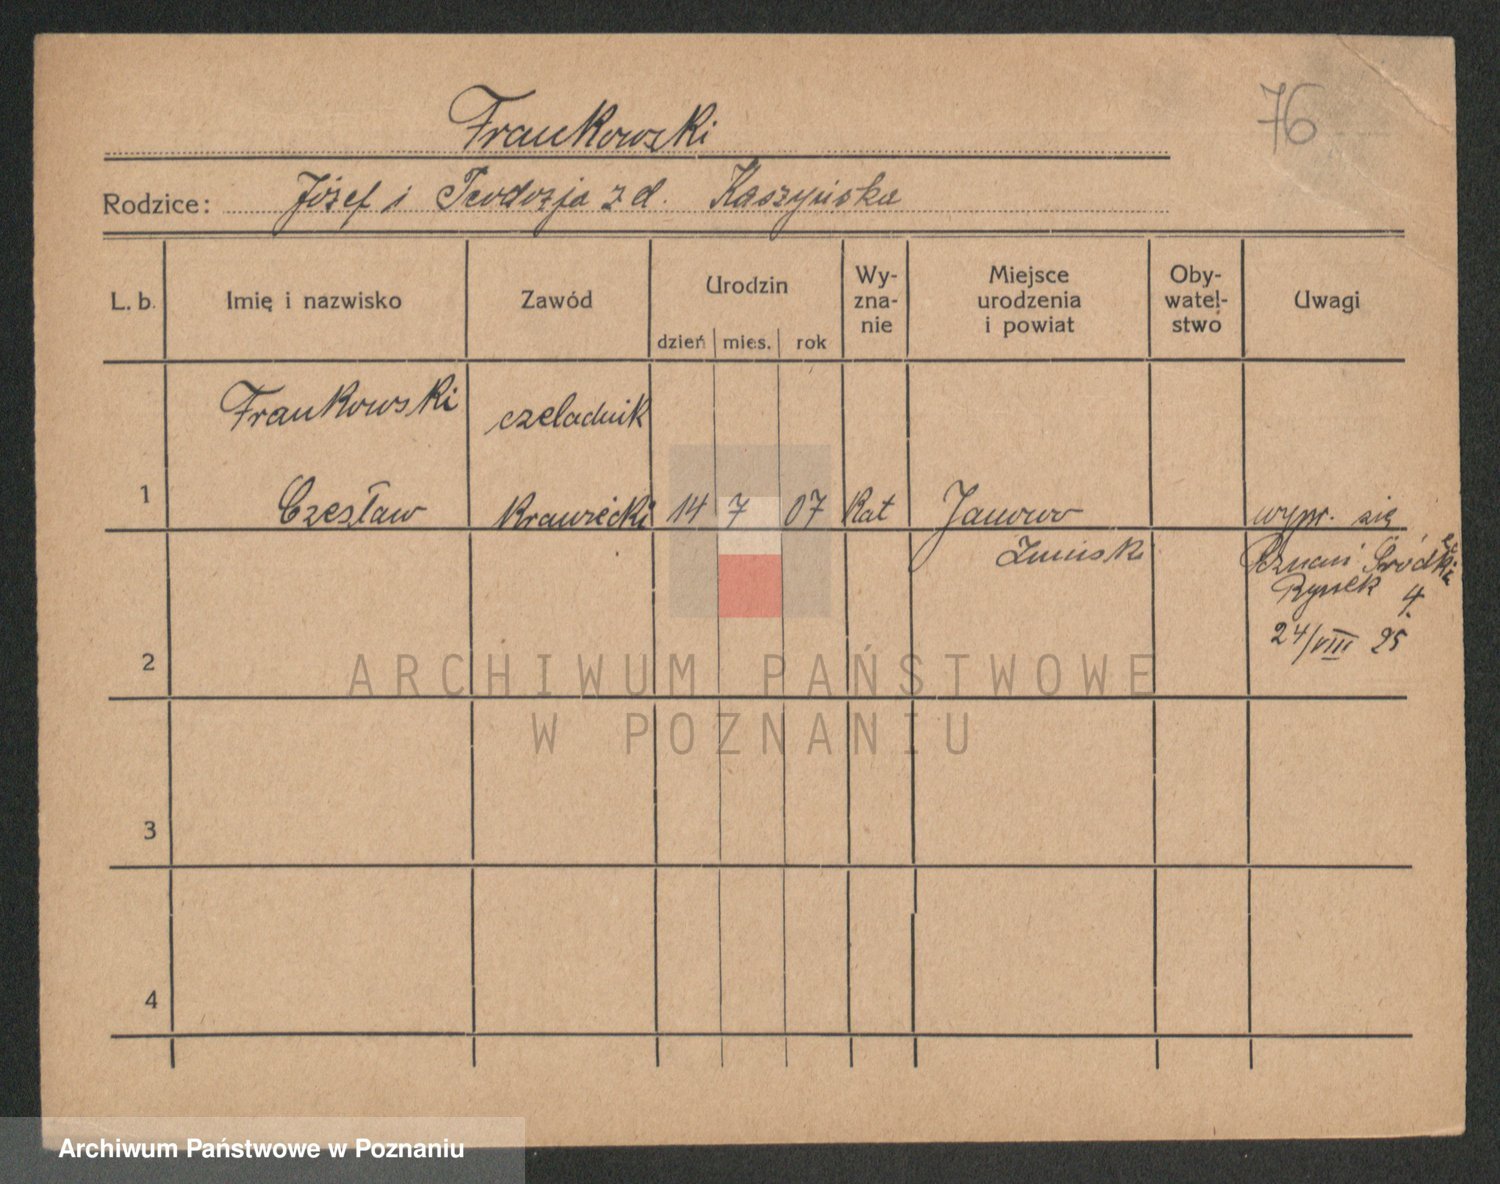 76
Frankowski
Rodzice: Józef i Teodozja z d. Kaszyńska
L. b. Imię i nazwisko Zawód Urodzin dzień mies. rok Wy-zna-nie Miejsce urodzenia i powiat Oby-watel-stwo Uwagi
Frankowski czeladnik
1 Czesław krawiecki 14 7 07 Kat Janowo wypr. się
Żniński Poznań Śródecki
Rynek 4.
24/VIII 25
2
3
4
ARCHIWUM PAŃSTWOWE
W POZNANIU
Archiwum Państwowe w Poznaniu